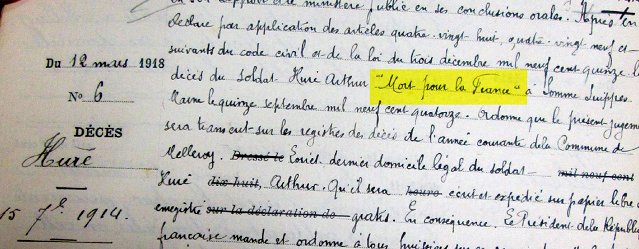 Du 12 mars 1918
N° 6
DÉCÈS
Huré
15 7bre 1914.
ministère public en ses conclusions orales. Après en
déclare par application des articles quatre-vingt huit, quatre-vingt neuf et
suivants du code civil et de la loi du trois décembre mil neuf cent quinze le
décès du soldat Huré Arthur "Mort pour la France" à Somme Suippes
Marne le quinze septembre mil neuf cent quatorze. Ordonne que le présent jugement
sera transcrit sur les registres des décès de l'année courante de la Commune de
Melleroy. Dressé le dernier domicile légal du soldat — mil neuf cent
Huré dix huit, Arthur. Qu'il sera heure écrit et expédié sur papier libre et
enregistré sur la déclaration de gratis. En conséquence. Le Président de la République
française mande et ordonne à tous huissiers